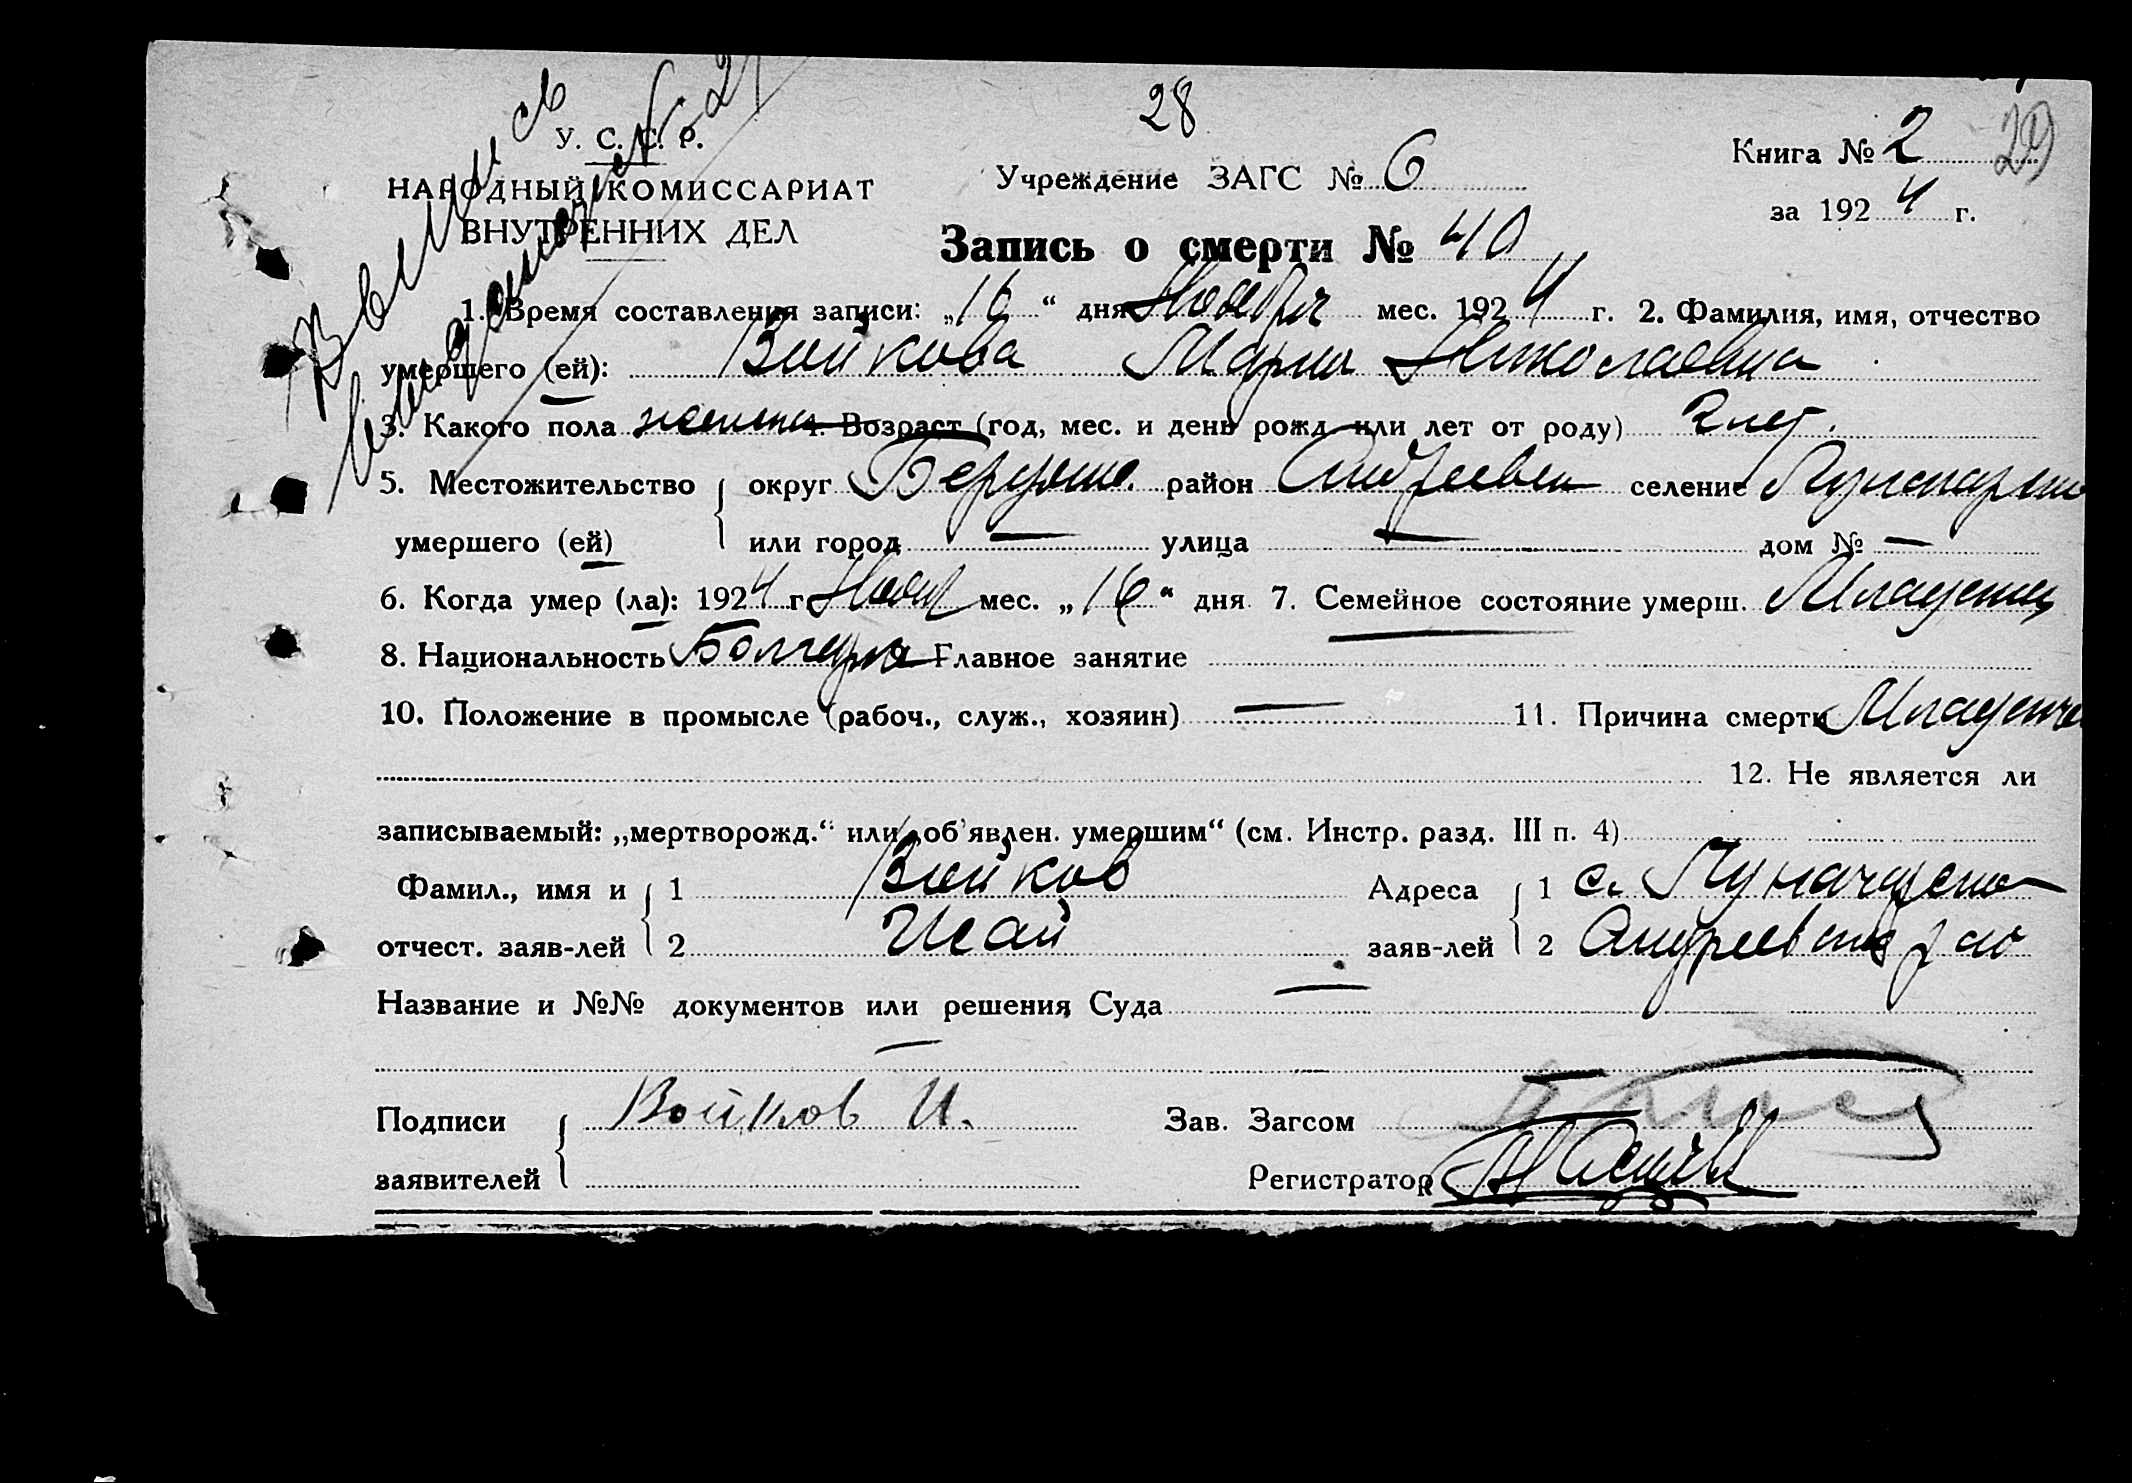 28
29
У. С. С. Р.
НАРОДНЫЙ КОМИССАРИАТ
ВНУТРЕННИХ ДЕЛ
Учреждение ЗАГС № 6
Книга № 2
за 1924 г.
Запись о смерти № 40
1. Время составления записи: „16“ дня Ноября мес. 1924 г. 2. Фамилия, имя, отчество
умершего (ей): Войкова Мария Николаевна
3. Какого пола женск 4. Возраст (год, мес. и день рожд. или лет от роду) 2 лет.
5. Местожительство округ Бердянс. район Андреевск селение
умершего (ей) или город — улица — дом № —
6. Когда умер (ла): 1924 г. Нояб мес. „16“ дня 7. Семейное состояние умерш. Младенец
8. Национальность Болгарка Главное занятие
10. Положение в промысле (рабоч., служ., хозяин) — 11. Причина смерти Младенче
12. Не является ли
записываемый: „мертворожд.“ или „об'явлен. умершим“ (см. Инстр. разд. III п. 4)
Фамил., имя и 1 Войков Адреса 1 с.
отчест. заяв-лей 2 Исай заяв-лей 2 Андреевского р-на
Название и №№ документов или решения Суда —
—
Подписи Войков И. Зав. Загсом
заявителей Регистратор